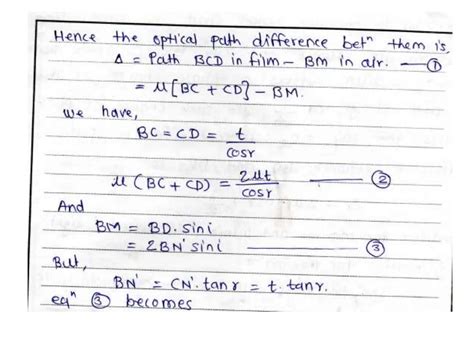 Hence the optical path difference betⁿ them is,
Δ = Path BCD in film - BM in air. — ①
= μ[BC + CD] - BM.
we have,
BC = CD = t / cosr
μ (BC + CD) = 2μt / cosr — ②
And
BM = BD. sini
= 2BN' sini — ③
But,
BN' = CN'. tanr = t. tanr.
eqⁿ ③ becomes